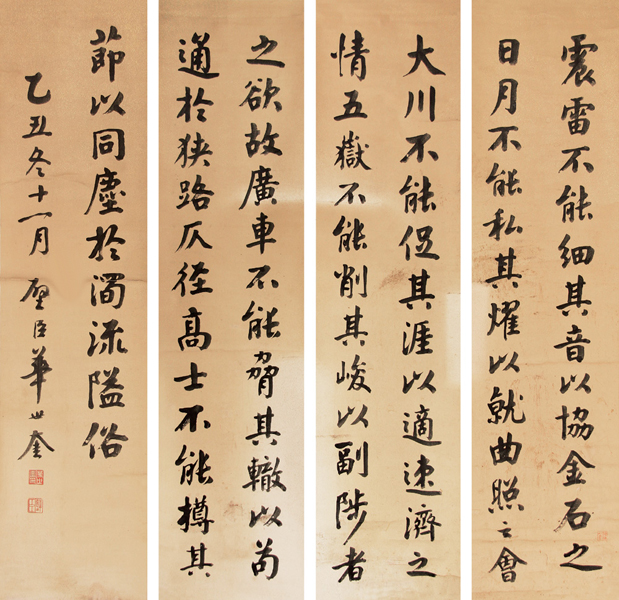 震雷不能細其音以協金石之
日月不能私其燿以就曲照之會
大川不能促其涯以適速濟之
情五嶽不能削其峻以副陟者
之欲故廣車不能脅其轍以苟
通於狹路仄徑高士不能撙其
節以同塵於濁流隘俗
乙丑冬十一月 壁臣華世奎